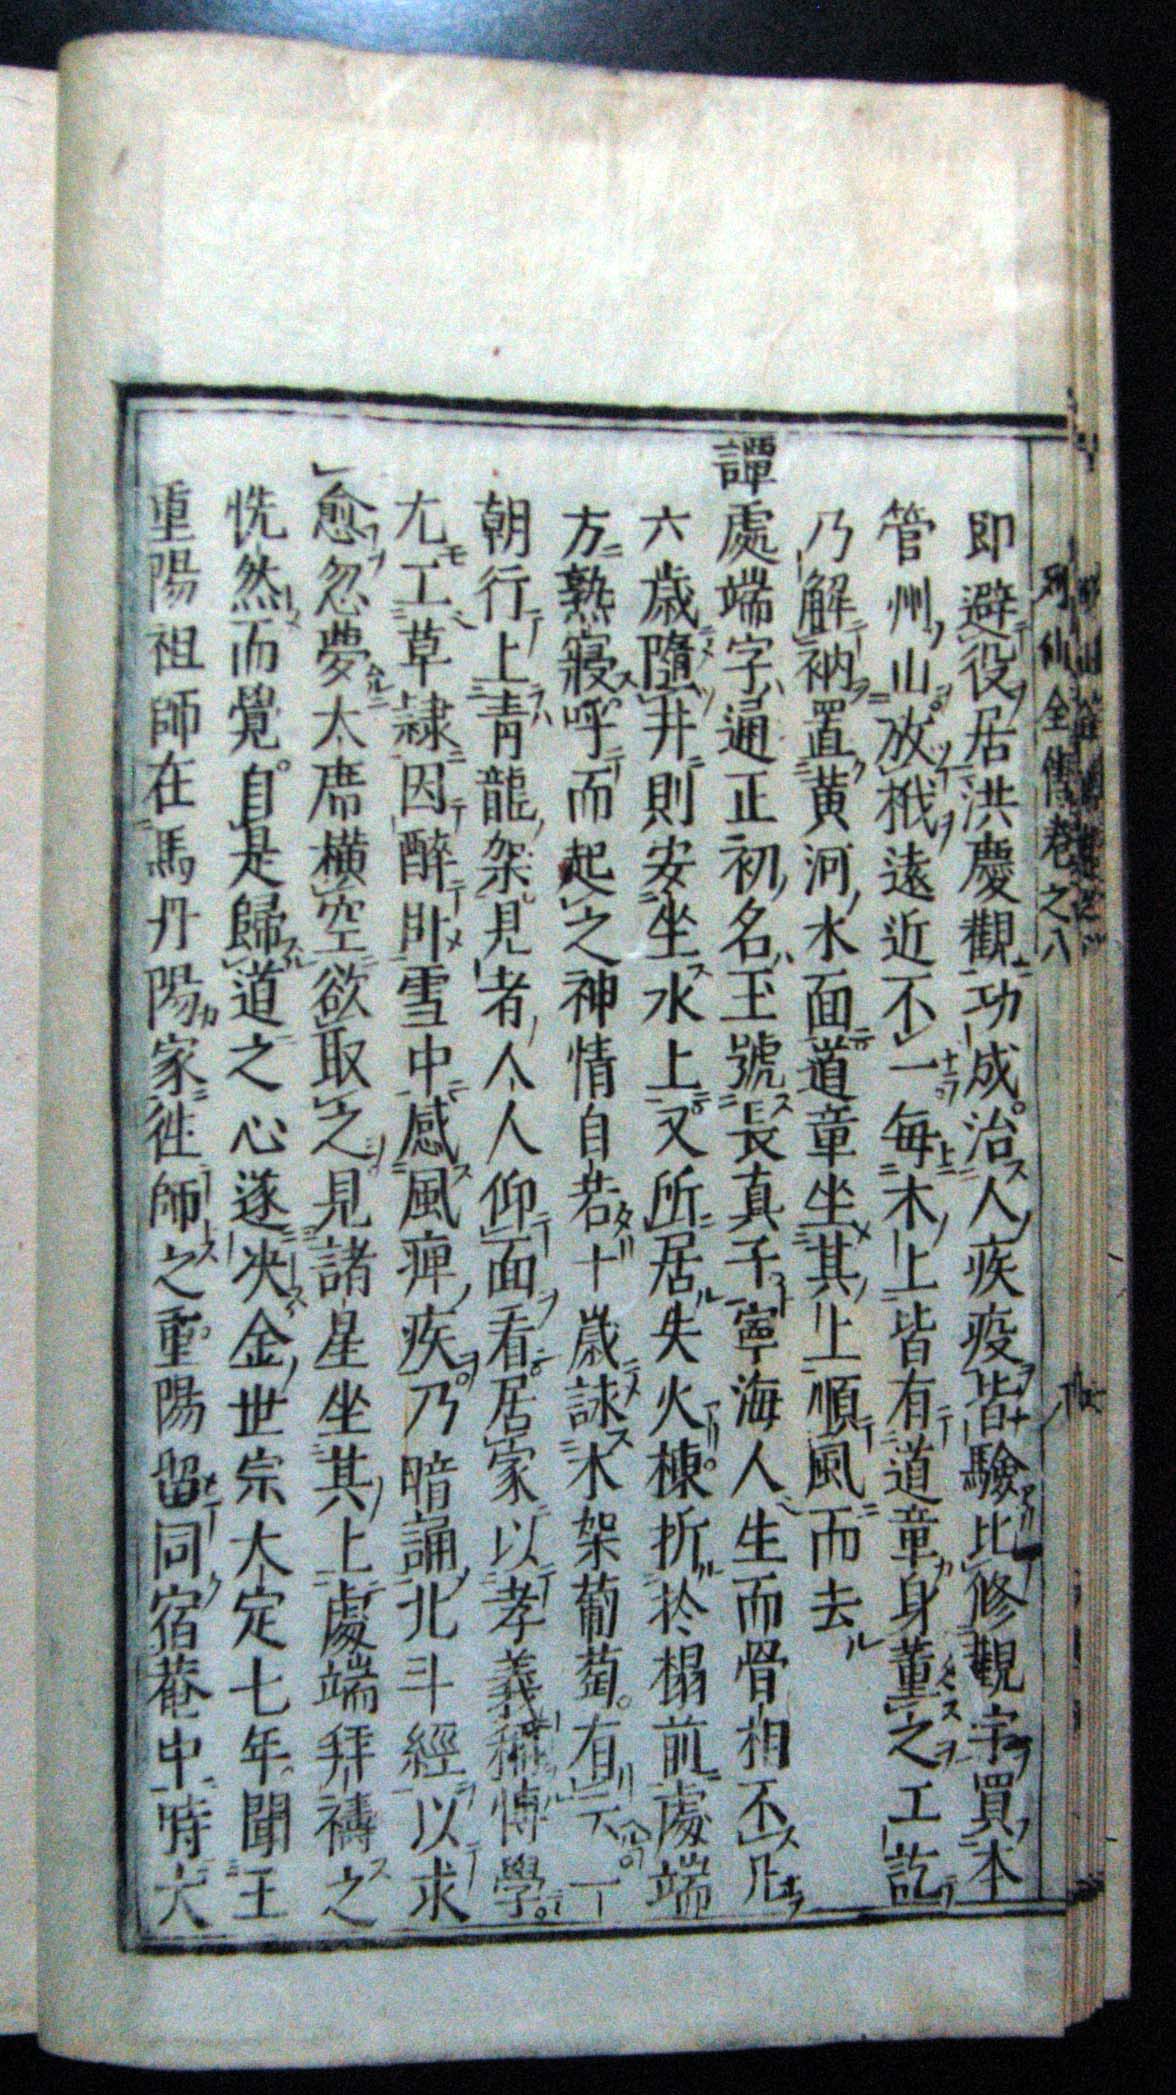 列仙全傳卷之八
即避役居洪慶觀功成治人疾疫皆驗比修觀宇買木
管州山放栰遠近不一每木上皆有道童身董之工訖
乃解衲置黃河水面道童坐其上順風而去
譚處端字通正初名玉號長真子寧海人生而骨相不凡
六歲墮井則安坐水上又所居失火棟折於榻前處端
方熟寢呼而起之神情自若十歲詠木架葡萄有云一
朝行上青龍架見者人人仰面看居家以孝義稱博學
尤工草隸因醉卧雪中感風痺疾乃暗誦北斗經以求
愈忽夢大席橫空欲取之見諸星坐其上處端拜禱之
恍然而覺自是歸道之心遂决金世宗大定七年聞王
重陽祖師在馬丹陽家徃師之重陽留同宿菴中時大